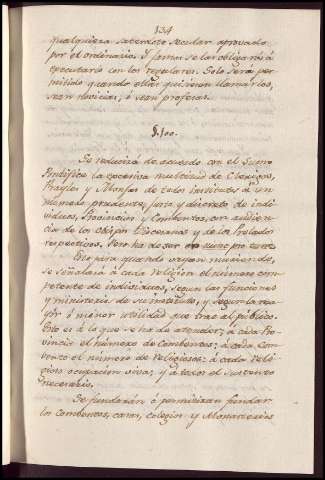 134
qualquiera sacerdote secular aprovado
por el ordinario. Y jamas se las obligará á
executarlo con los regulares. Solo será per
mitido quando ellas quisieren llamarlos,
sean novicias, ó sean profesas.
§. 100.
Se reducirá de acuerdo con el Sumo
Pontifice la excesiva multitud de Clerigos,
Frayles y Monjas de todos Institutos á un
numero prudente, justo y discreto de indi
viduos, Provincias y Conbentos, con audien
cia de los obispos Diocesanos y de los Prelados
respectivos. Pero ha de ser
Esto para quando vayan muriendo,
se señalará á cada Religion el número com
petente de individuos, segun las funciones
y ministerio de su instituto, y segun la ma
yor ó menor utilidad que trae al público.
Esto es á lo que se ha de atender; á cada Pro
vincia el número de combentos; á cada Com
bento el número de Religiosos: á cada Reli
gioso ocupacion viva; y á todos el sustento
necesario.
Se fundarán, ó permitirán fundar
los combentos, casas, colegios y Monasterios